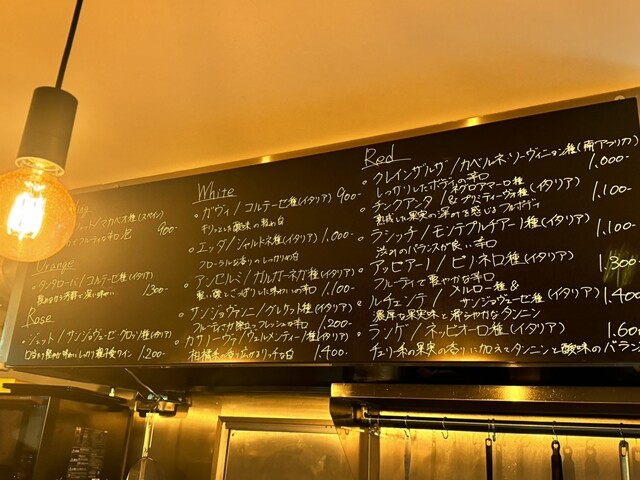 ット/マカベオ種(スペイン)
フルーティな辛口泡 900-
Orange
・タンタローバ/コルテーゼ種(イタリア)
1,300-
Rose
・ジェット/サンジョヴェーゼ・グロッソ種(イタリア)
1,200-
White
・ガヴィ/コルテーゼ種(イタリア) 900-
キリッとした酸味の軽め白
・エッダ/シャルドネ種(イタリア) 1,000-
フローラルな香りのしっかりめ白
・アンセルミ/ガルガネガ種(イタリア)
軽い散とさっぱりした味わいの辛口 1,100-
・サンジョヴァンニ/グレケット種(イタリア)
フルーティさ際立つフレッシュな辛口 1,200-
・カサリーヴァ/ヴェルメンティーノ種(イタリア)
柑橘系の香り広がるリッチな白 1,400-
Red
・クレインザルザ/カベルネ・ソーヴィニヨン種(南アフリカ)
しっかりしたボディの辛口 1,000-
・チンクアンタ/ネグロアマーロ種&プリミティーヴォ種(イタリア)
熟成した果実の深みを感じるフルボディ 1,100-
・ラシッチ/モンテプルチアーノ種(イタリア)
渋みのバランスが良い辛口 1,100-
・アッピアーノ/ピノネロ種(イタリア)
フルーティで軽やかな辛口 1,300-
・ルチェンテ/メルロー種&サンジョヴェーゼ種(イタリア) 1,400
濃厚な果実味と滑らかなタンニン
・ランゲ/ネッビオーロ種(イタリア) 1,600
チェリー系の果実の香りに加えてタンニンと酸味のバラン